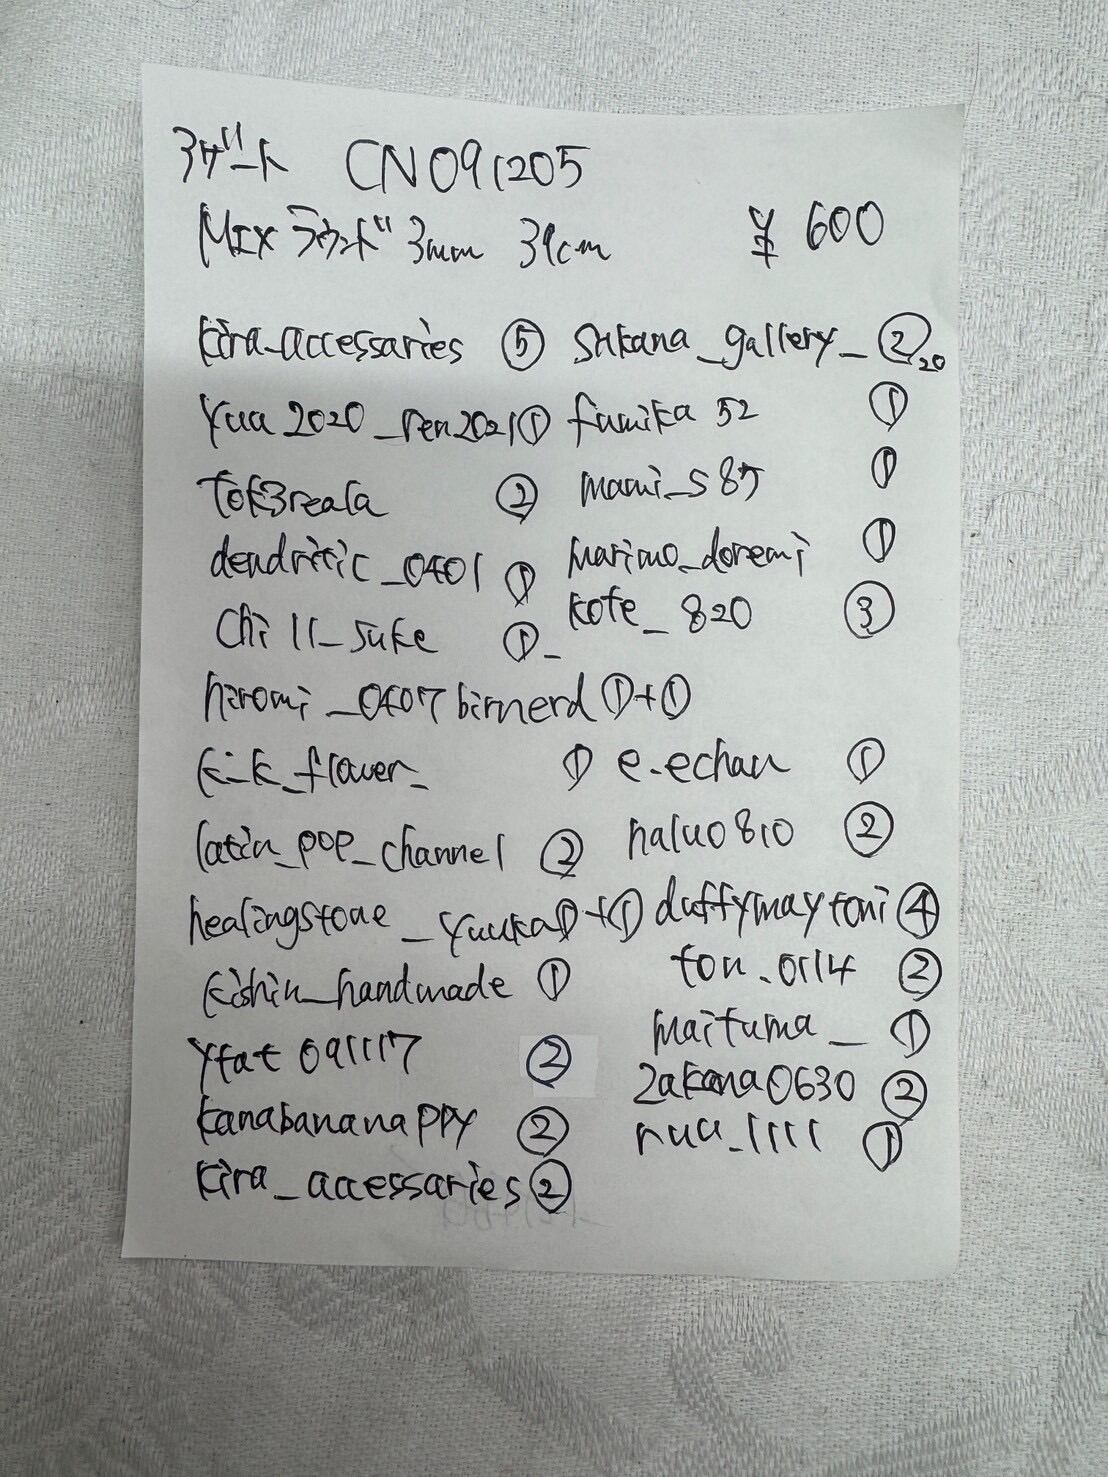 アゲート CN091205
MIX ラウンド 3mm 39cm ¥600
kira_accessaries ⑤ sukana_gallery_ ② 20
yua2020_ren2021 ① fumika52 ①
tok3reala ② mami_s87 ①
dendritic_0401 ① marimo_doremi ①
chill_suke ① _ kote_820 ③
hiromi_0407birnerd ①+①
k-k_flower_ ① e.echan ①
latin_pop_channel ② nalu0810 ②
healingstone_yuuka ①+① duffymaytoni ④
kishin_handmade ① ton.0114 ②
yfat091117 ② maituma_ ①
kanabananappy ② zakana0630 ②
kira_accessaries ② nua_1111 ①